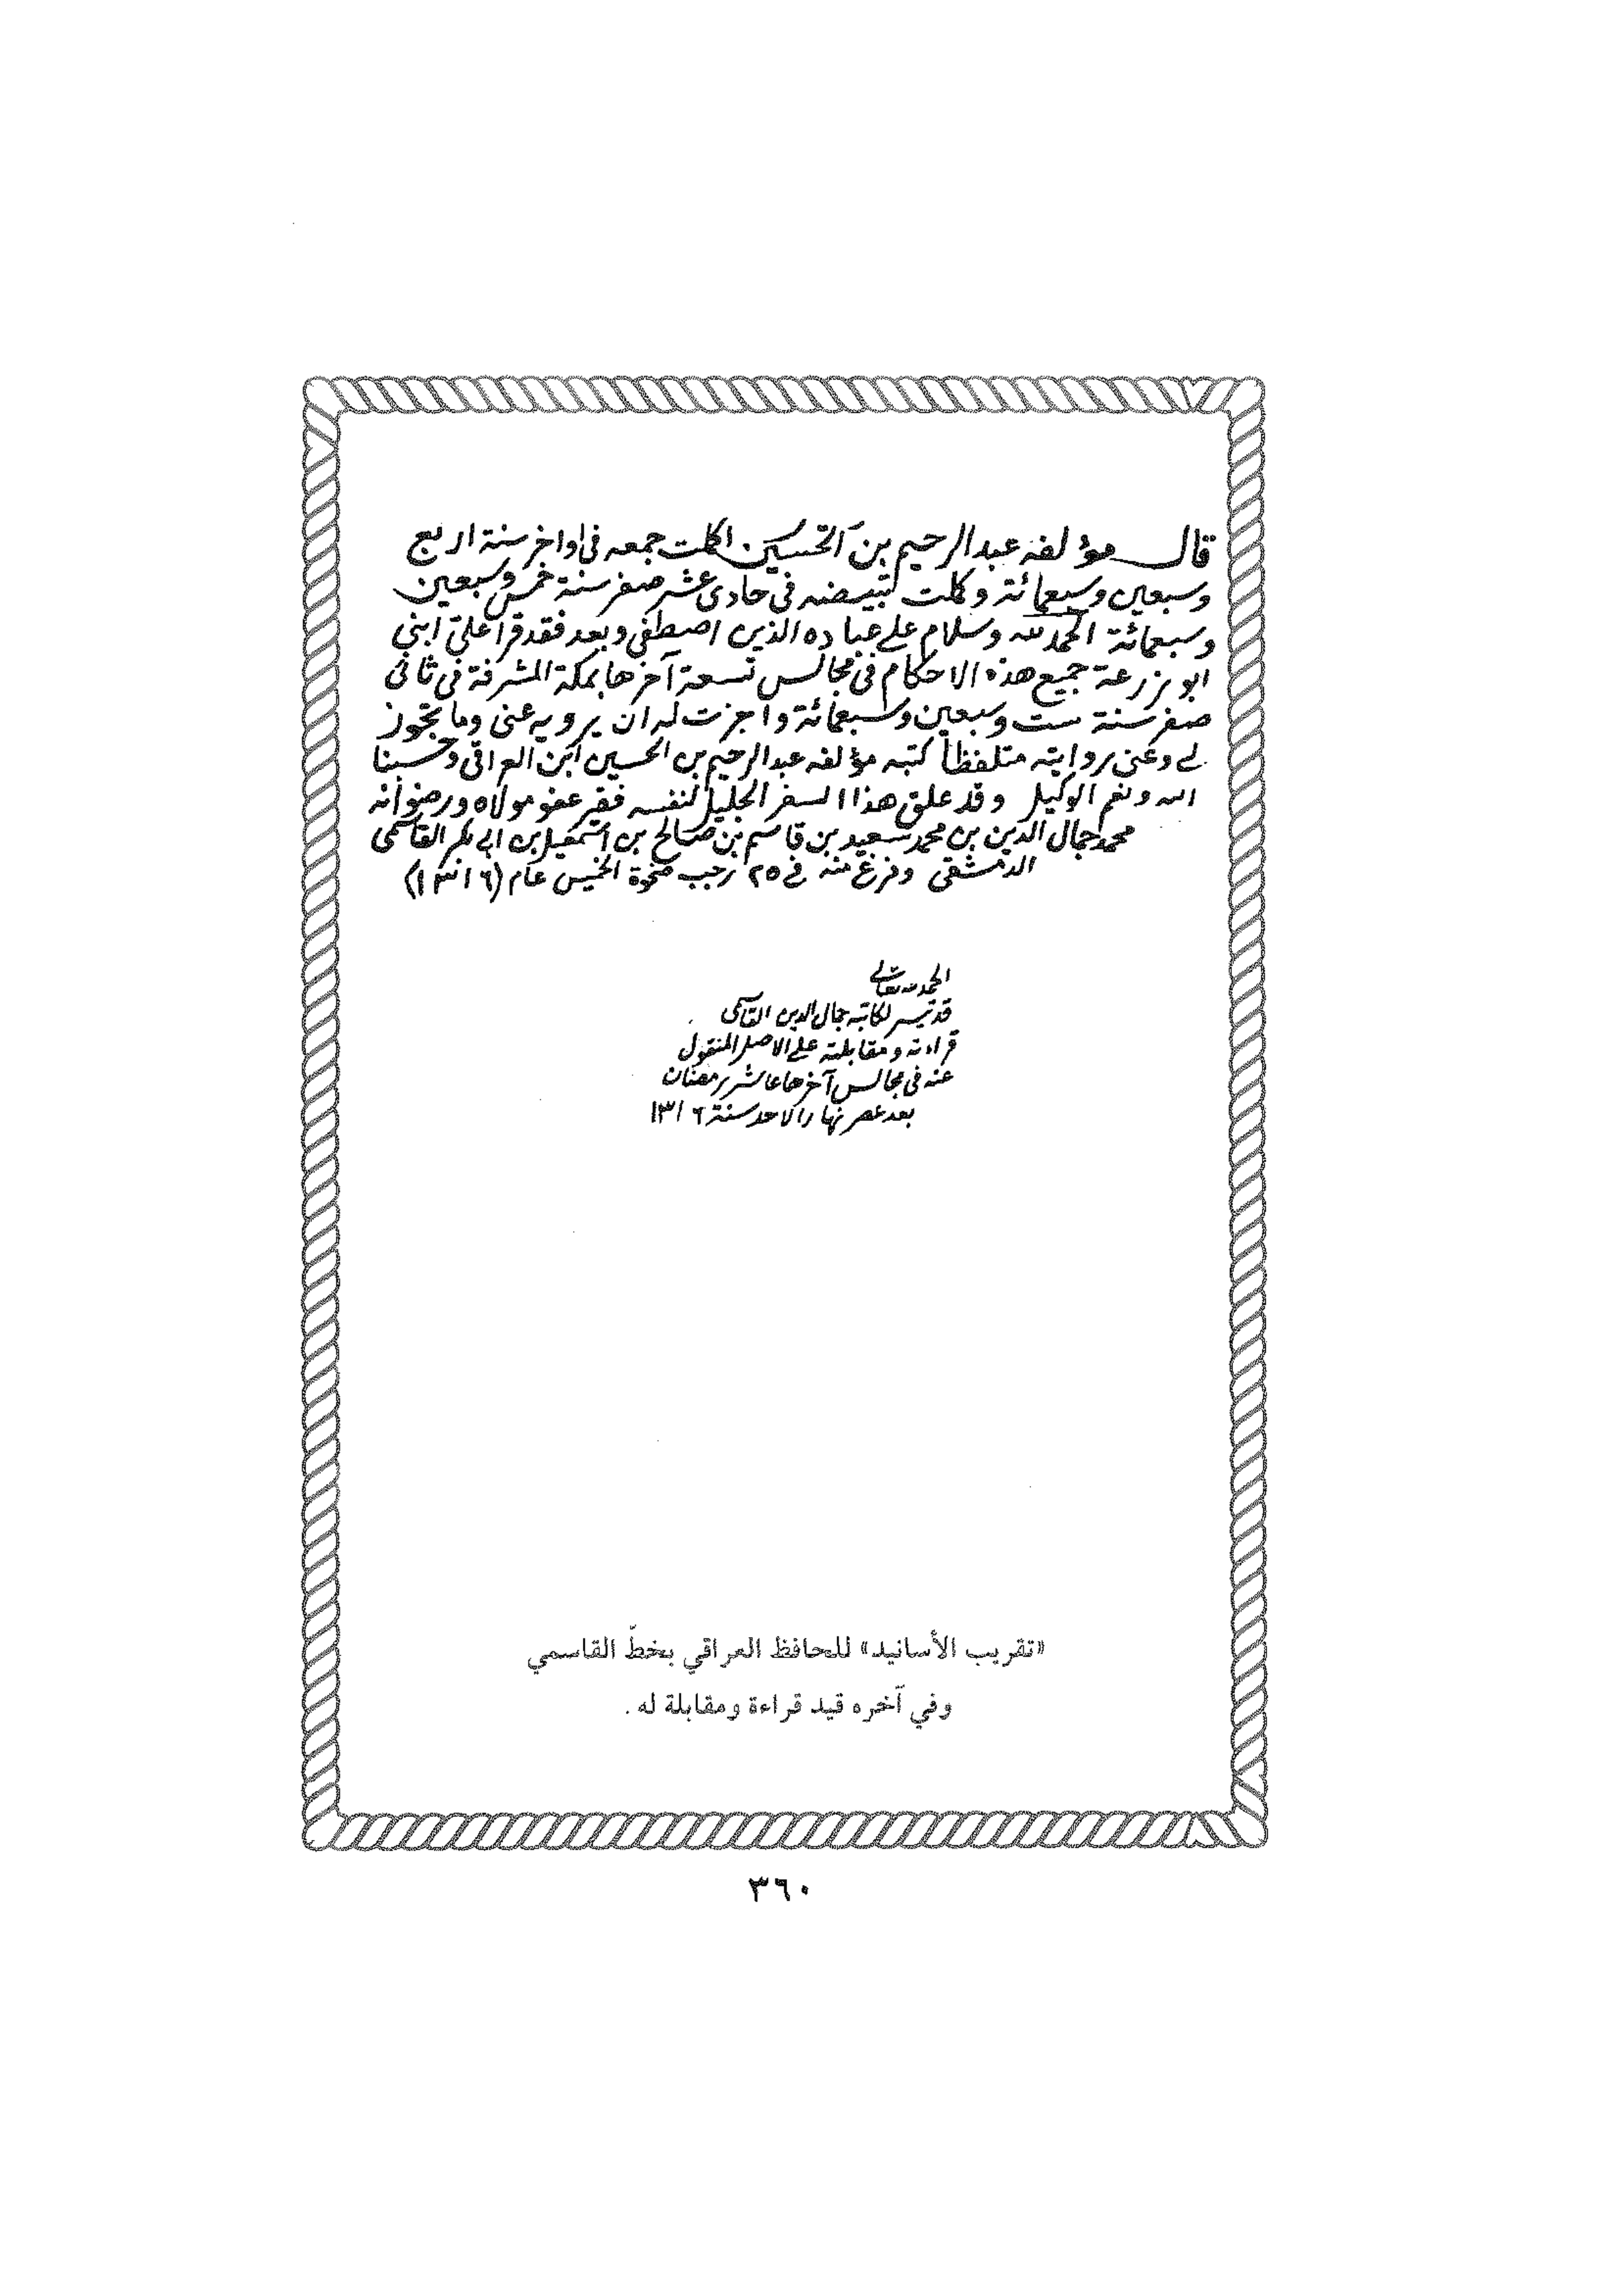 قال مؤلفه عبدالرحيم بن الحسين اكملت جمعه فى اواخر سنة اربع
وسبعين وسبعمائة وكملت تبييضه فى حادى عشر صفر سنة خمس وسبعين
وسبعمائة الحمد لله وسلام على عباده الذين اصطفى وبعد فقد قرأ علىّ ابنى
ابو زرعة جميع هذه الاحكام فى مجالس تسعة آخرها بمكة المشرفة فى ثانى
صفر سنة ست وسبعين وسبعمائة واجزت له ان يرويه عنى وما يجوز
لى وعنى روايته متلفظاً كتبه مؤلفه عبدالرحيم بن الحسين ابن العراقى وحسبنا
الله ونعم الوكيل وقد علق هذا السفر الجليل لنفسه فقير عفو مولاه ورضوانه
محمد جمال الدين بن محمد سعيد بن قاسم بن صالح بن اسمعيل بن ابى بكر القاسمى
الدمشقى وفرغ منه فى ٢٥ رجب ضحوة الخميس عام (١٣١٦)
الحمد لله تعالى
قد تيسر لكاتبه جمال الدين القاسمى
قراءته ومقابلته على الاصل المنقول
عنه فى مجالس آخرها عاشر رمضان
بعد عصر نهار الاحد سنة ١٣١٦
«تقريب الأسانيد» للحافظ العراقي بخطّ القاسمي
وفي آخره قيد قراءة ومقابلة له .
٣٦٠